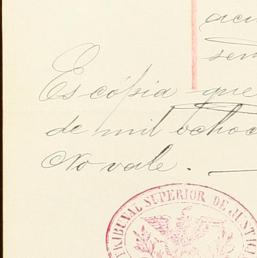 acu
sem
Es cópia que
de mil ochoc
No vale.
TRIBUNAL SUPERIOR DE JUSTICIA